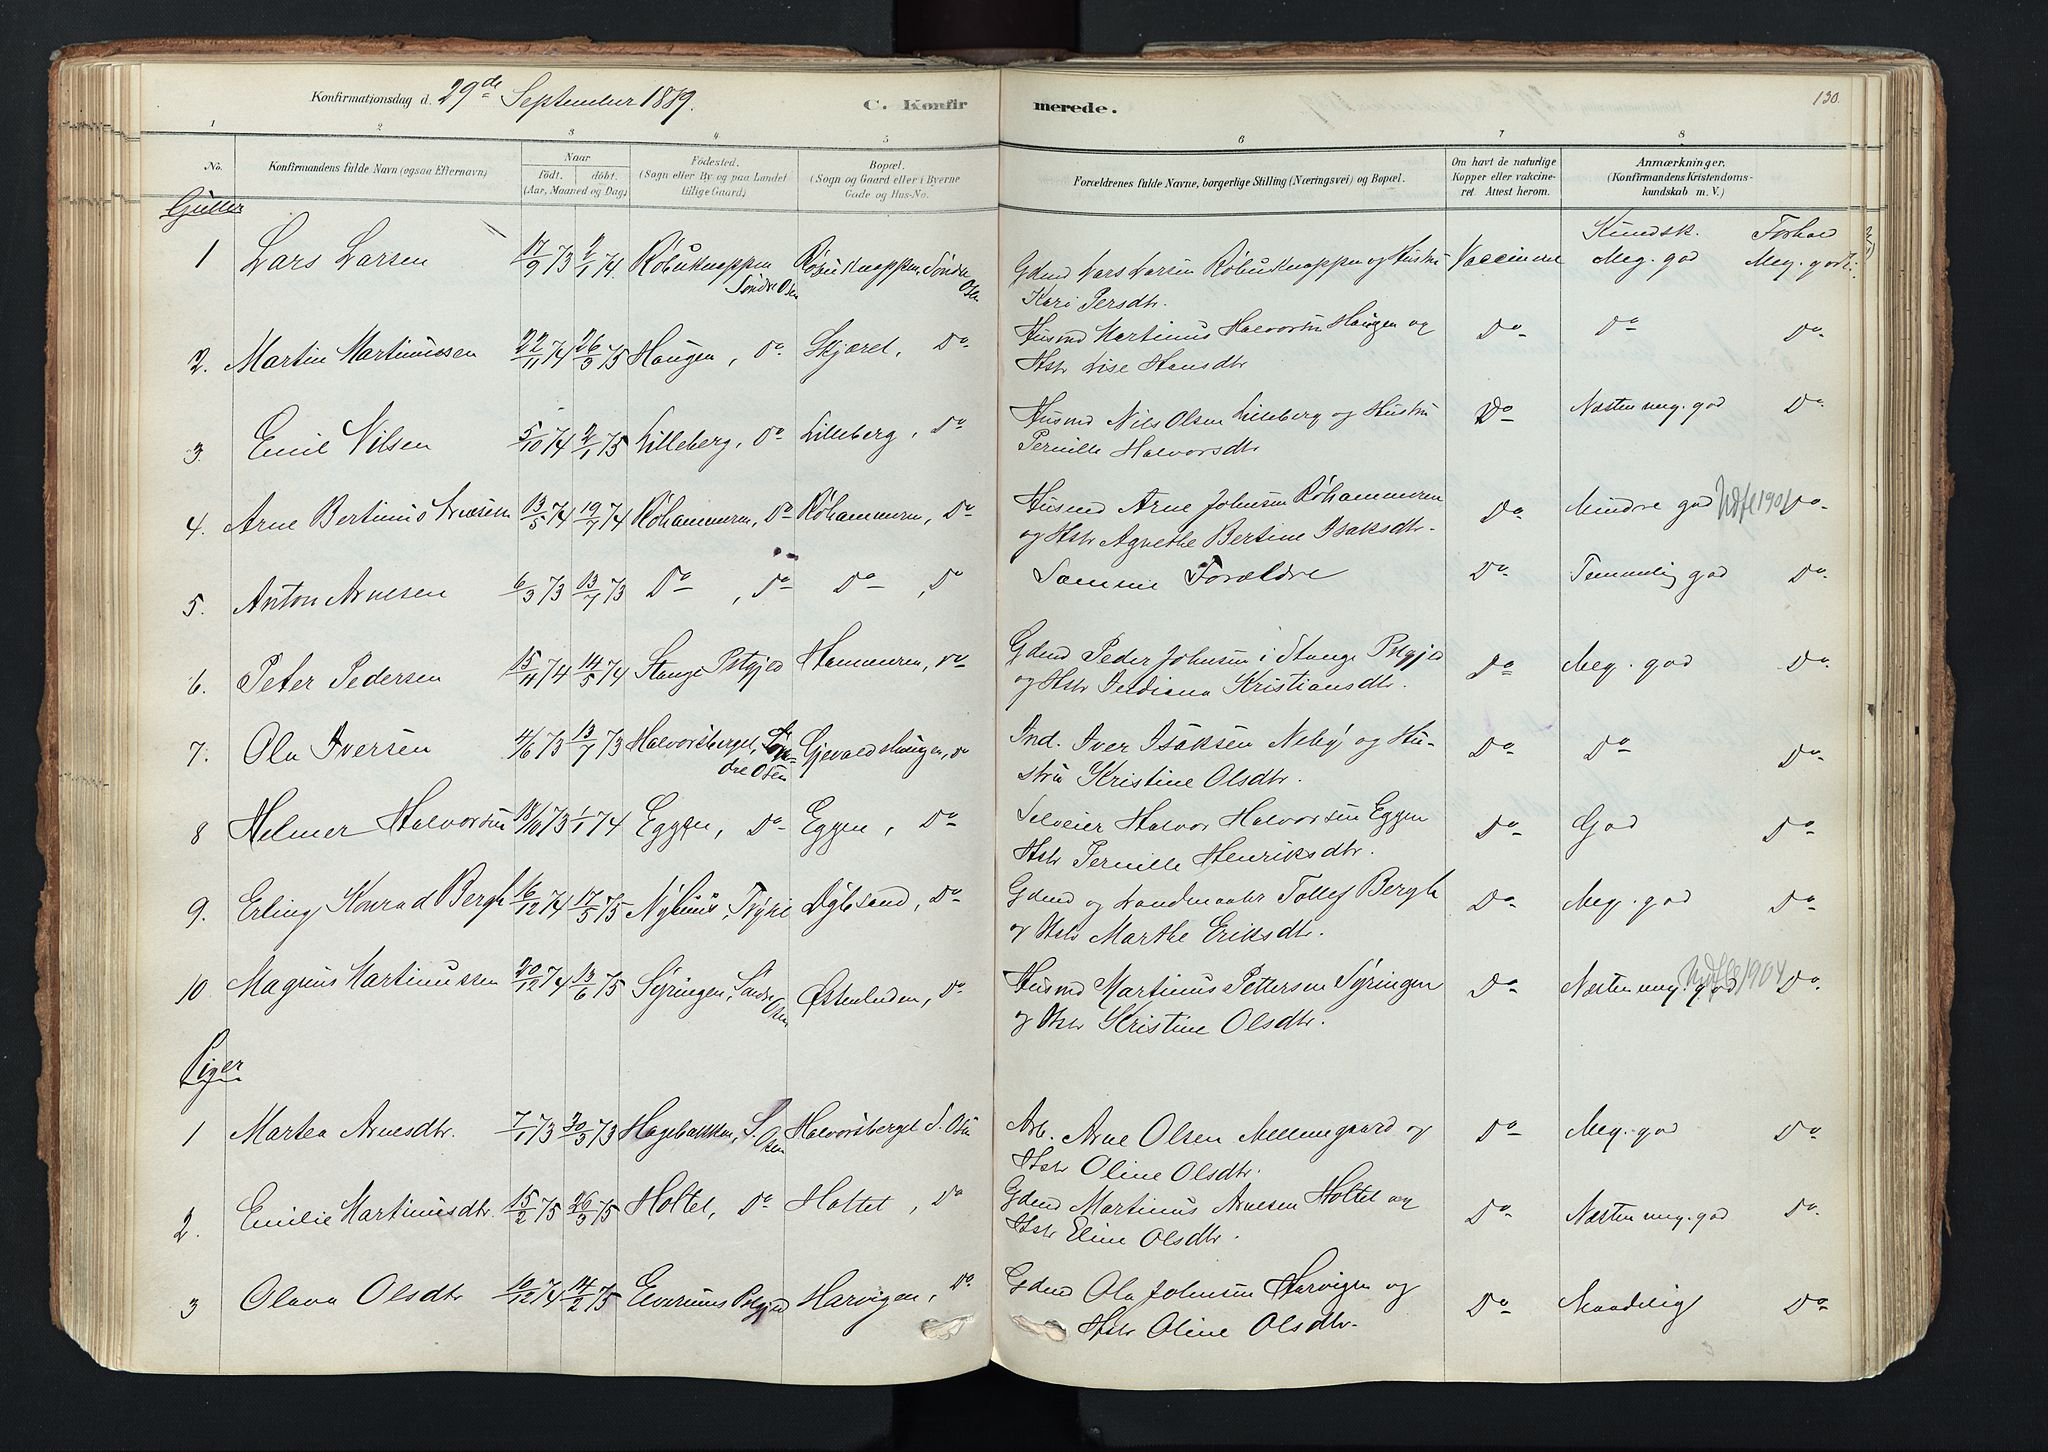 Konfirmationsdag d. 29de September 1889.
C. Konfirmerede.
130.
1 2 3 4 5 6 7 8
No.
Konfirmandens fulde Navn (ogsaa Efternavn)
Naar
født. døbt.
(Aar, Maaned og Dag)
Fødested.
(Sogn eller By og paa Landet tillige Gaard)
Bopæl.
(Sogn og Gaard eller i Byerne Gade og Hus-No.
Forældrenes fulde Navne, borgerlige Stilling (Næringsvei) og Bopæl.
Om havt de naturlige Kopper eller vakcineret. Attest herom.
Anmærkninger.
(Konfirmandens Kristendomskundskab m. V.)
Gutter
Kundsk. Forhold
1 Lars Larsen 17/9 73 2/1 74 Røbuknappen Søndre Osen Røbuknappen, Søndre Osen Gdmd Lars Larsen Røbuknappen og Hustru Vaccineret Meg. god Meg. godt.
Kari Persdtr.
2. Martin Martinussen 22/11 74 26/3 75 Haugen, Do Skjæret, Do Husmd Martinus Halvorsen Haugen og Do Do Do
Hstr Lise Hansdtr
3. Emil Nilsen 5/10 74 2/1 75 Lilleberg, Do Lilleberg, Do Husmd Nils Olsen Lilleberg og Hustru Do Næsten meg. god Do
Pernille Halvorsdtr
4. Arne Bertinus Arnesen 13/5 74 19/7 74 Røhammeren, Do Røhammeren, Do Husmd Arne Johnsen Røhammeren Do Mindre god Do
og Hstr Agnethe Bertine Isaksdtr.
5. Anton Arnesen 6/3 73 13/7 73 Do, Do Do, Do Samme Forældre Do Temmelig god Do
6. Peter Pedersen 15/4 74 14/5 74 Stange Pstgjed Hammeren, Do Gdmd Peder Johnsen i Stange Pstgjed Do Meg. god Do
og Hstr Kristiansdtr.
7. Ola Iversen 4/6 73 13/7 73 Halvorsberget, Søndre Osen Gjevaldshaugen, Do Ind. Iver Isaksen Neby og Hu- Do Do Do
stru Kristine Olsdtr.
8 Helmer Halvorsen 18/10 73 1/1 74 Eggen, Do Eggen, Do Selveier Halvor Halvorsen Eggen Do God Do
Hstr Pernille Henriksdtr.
9. Erling Konrad Bergh 16/12 74 17/5 75 Nyhuus, Trysil Dybsand, Do Gdmd og Landmaaler Tollef Bergh Do Meg. god Do
og Hstr Marthe Eriksdtr.
10 Magnus Martinussen 20/12 74 13/6 75 Syringen, Søndre Osen Østenheden, Do Husmd Martinus Pettersen Syringen Do Næsten meg. god Do
og Hstr Kristine Olsdtr.
Piger
1 Martea Arnesdtr. 7/1 73 30/3 73 Hagebakken, S. Osen Halvorsberget S. Osen Arb. Arne Olsen Mellemgaard og Do Meg. god Do
Hstr Oline Olsdtr.
2. Emilie Martinusdtr. 15/2 75 26/3 75 Holtet, Do Holtet, Do Gdmd Martinus Arnesen Holtet og Do Næsten meg. god Do
Hstr Eline Olsdtr.
3 Olava Olsdtr 10/12 74 14/2 75 Elverums Pstgjed Harvigen, Do Gdmd Ola Johnsen Harvigen og Do Maadeligt Do
Hstr Oline Olsdtr.